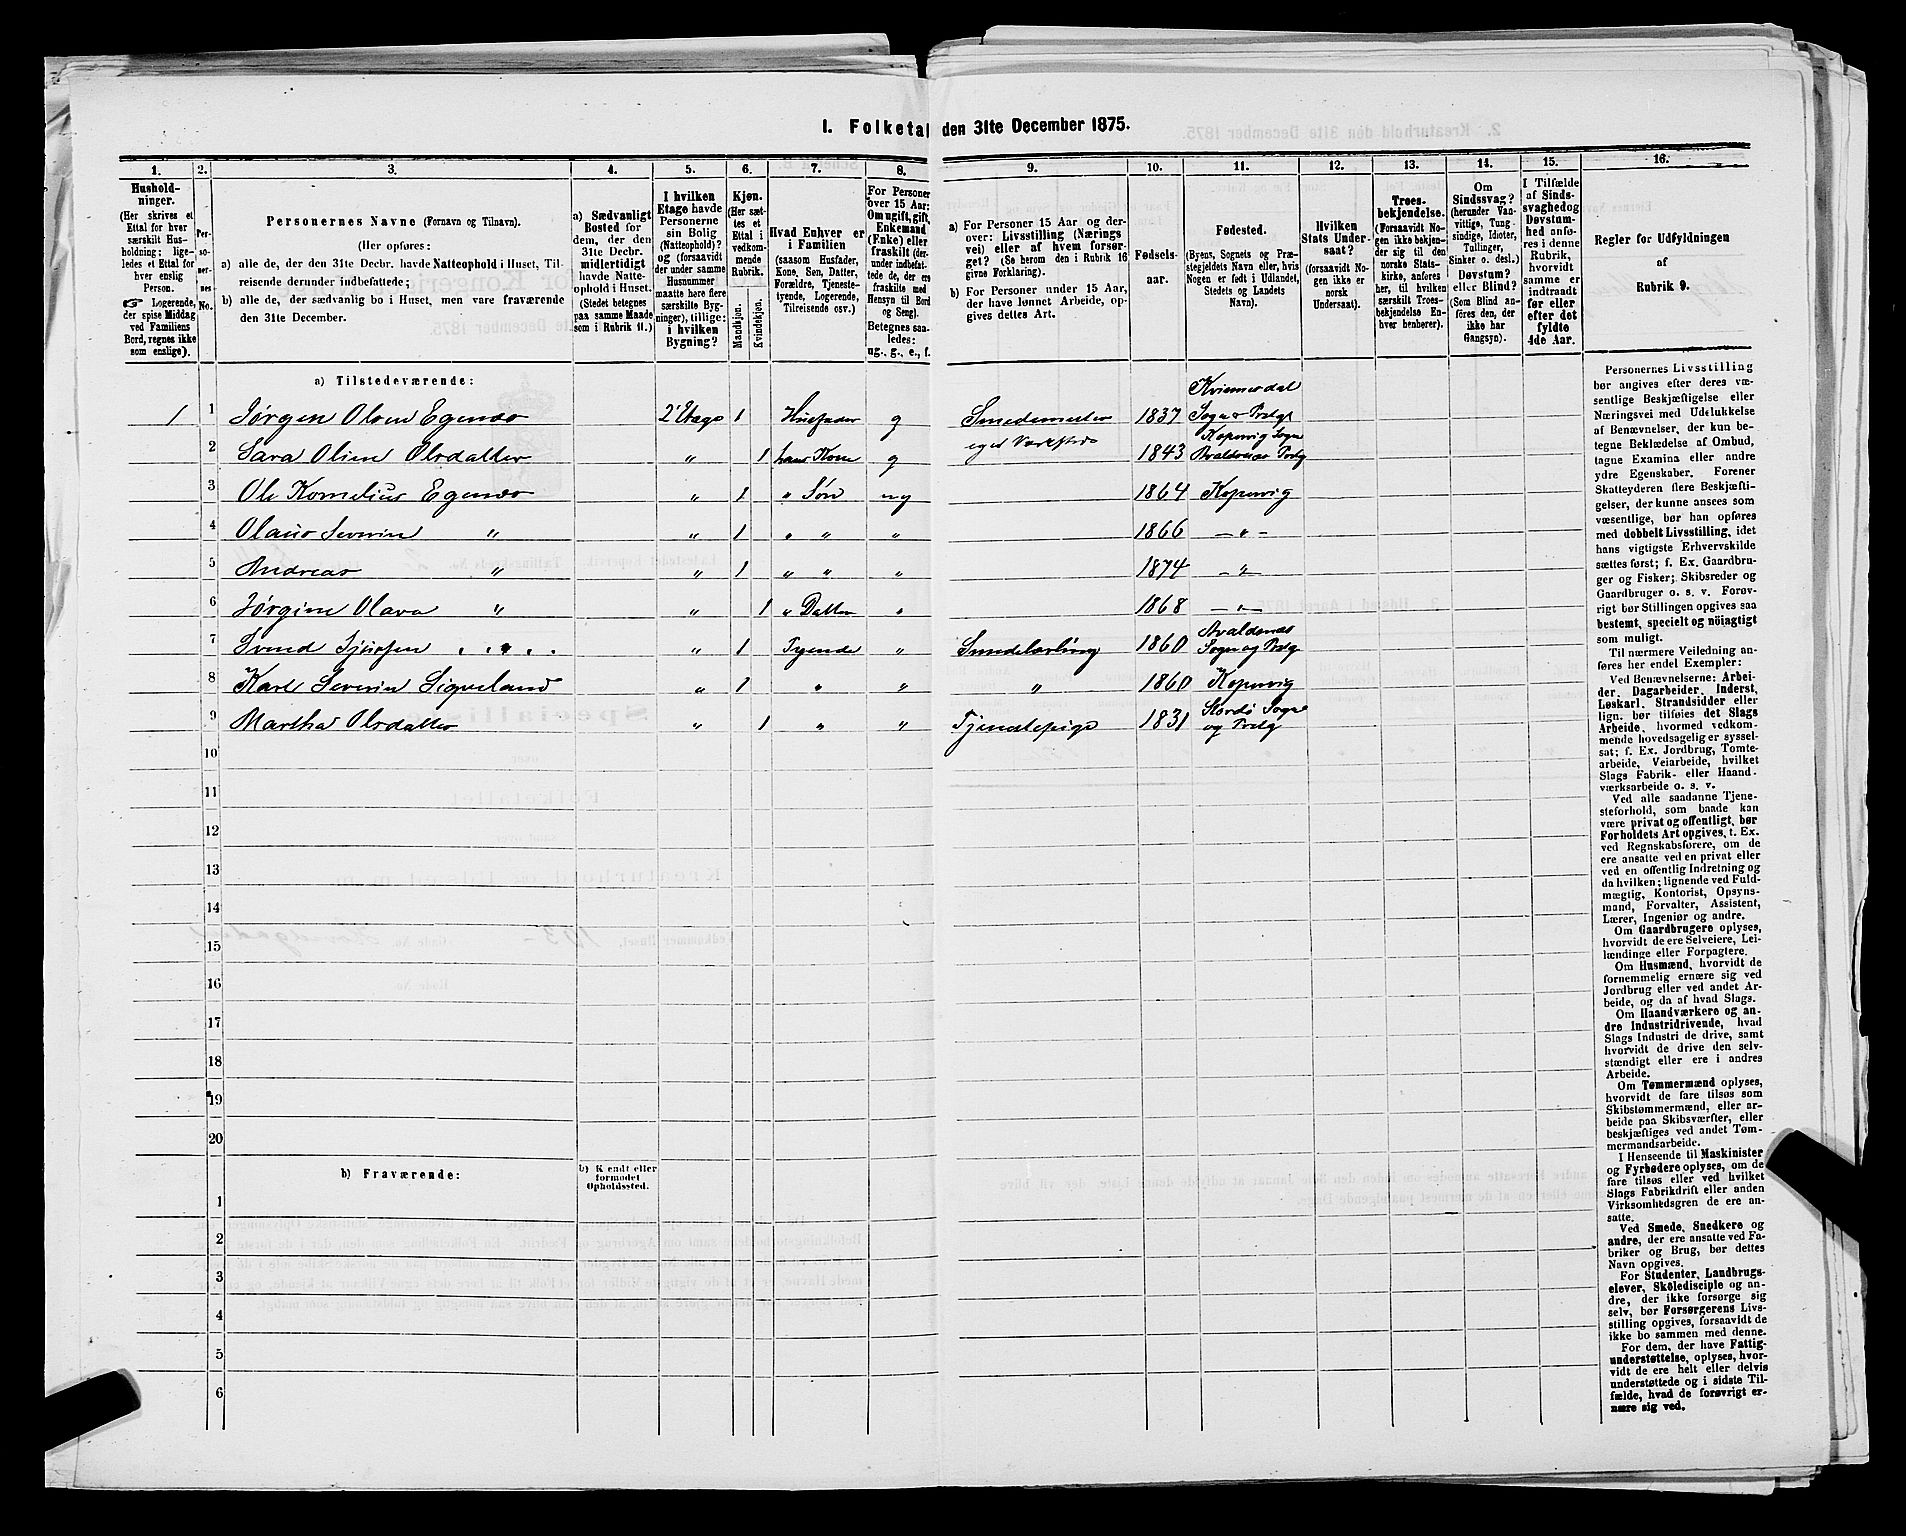 I. Folketal den 31te December 1875.
1.
Hushold-
ninger.
(Her skrives et
Ettal for hver
særskilt Hus-
holdning; lige-
ledes et Ettal for
hver enslig
Person.
☞ Logerende,
der spise Middag
ved Familiens
Bord, regnes ikke
som enslige).
2.
Per-
so-
ner-
nes
No.
3.
Personernes Navne (Fornavn og Tilnavn).
(Her opføres:
a) alle de, der den 31te Decbr. havde Natteophold i Huset, Til-
reisende derunder indbefattede;
b) alle de, der sædvanlig bo i Huset, men vare fraværende
den 31te December.
4.
a) Sædvanligt
Bosted for
dem, der den
31te Decbr.
midlertidigt
havde Natte-
ophold i Huset.
(Stedet betegnes
paa samme Maade
som i Rubrik 11.)
5.
I hvilken
Etage havde
Personerne
sin Bolig
(Natteophold)?
og (forsaavidt
der under samme
Husnummer
maatte høre flere
særskilte Byg-
ninger), tillige:
i hvilken
Bygning?
6.
Kjøn.
(Her sæt-
tes et
Ettal i
vedkom-
mende
Rubrik.
Mandkjøn.
Kvindekjøn.
7.
Hvad Enhver er
i Familien
(saasom Husfader,
Kone, Søn, Datter,
Forældre, Tjeneste-
tyende, Logerende,
Tilreisende osv.)
8.
For Personer
over 15 Aar:
Om ugift, gift,
Enkemand
(Enke) eller
fraskilt (der-
under indbefat-
tede de, der ere
fraskilte med
Hensyn til Bord
og Seng).
Betegnes saa-
ledes:
ug., g., e., f.
9.
a) For Personer 15 Aar og der-
over: Livsstilling (Nærings
vei) eller af hvem forsør-
get? (Se herom den i Rubrik 16
givne Forklaring).
b) For Personer under 15 Aar,
der have lønnet Arbeide, op-
gives dettes Art.
10.
Fødsels-
aar.
11.
Fødested.
(Byens, Sognets og Præ-
stegjeldets Navn eller, hvis
Nogen er født i Udlandet,
Stedets og Landets
Navn).
12.
Hvilken
Stats Under-
saat?
(forsaavidt No-
gen ikke er
norsk
Undersaat).
13.
Troes-
bekjendelse.
(Forsaavidt No-
gen ikke bekjen-
der sig til den
norske Stats-
kirke, anføres
her, til hvilken
særskilt Troes-
bekjendelse En-
hver henhører).
14.
Om
Sindssvag?
(herunder Van-
vittige, Tung-
sindige, Idioter,
Tullinger,
Sinker o. desl.)
Døvstum?
eller Blind?
(Som Blind an-
føres den, der
ikke har
Gangsyn).
15.
I Tilfælde
af Sinds
svaghed og
Døvstum-
hed anfø-
res i denne
Rubrik,
hvorvidt
samme er
indtraadt
før eller
efter det
fyldte
4de Aar.
16.
Regler for Udfyldningen
af
Rubrik 9.
a) Tilstedeværende:
1 1 Jørgen Olsen Egenæs 2' Etage 1 Husfader g Smedemester eget Værksted 1837 Kvinnesdal Sogn & Prstgl
2 Sara Olsen Olsdatter " 1 hans Kone g 1843 Kopervig Sogn Avaldsnæs Prstg
3 Ole Kornelius Egenæs " 1 " Søn ug 1864 Kopervig
4 Olaus Severin " " 1 " " " 1866 — " —
5 Andreas " " 1 " " " 1874 — "
6 Jørgine Olava " " 1 " Datter " 1868 — " —
7 Svend " 1 Tyende " Smedelærling 1860 Avaldsnæs Sogn og Prstg
8 Karl Severin Siqveland " 1 " " " 1860 Kopervig
9 Martha Olsdatter " 1 " " Tjenestepige 1831 Stordø Sogn og Prstg
10
11
12
13
14
15
16
17
18
19
20
b) Fraværende:
b) Kjendt eller
formodet
Opholdssted.
1
2
3
4
5
6
Personernes Livsstilling
bør angives efter deres væ-
sentlige Beskjæftigelse eller
Næringsvei med Udelukkelse
af Benævnelser, der kun be-
tegne Beklædelse af Ombud,
tagne Examina eller andre
ydre Egenskaber. Forener
Skatteyderen flere Beskjæfti-
gelser, der kunne ansees som
væsentlige, bør han opføres
med dobbelt Livsstilling, idet
hans vigtigste Erhvervskilde
sættes først; f. Ex. Gaardbru-
ger og Fisker; Skibsreder og
Gaardbruger o. s. v. Forøv-
rigt bør Stillingen opgives saa
bestemt, specielt og nöiagtigt
som muligt.
Til nærmere Veiledning an-
føres her endel Exempler:
Ved Benævnelserne: Arbei-
der, Dagarbeider, Inderst,
Løskarl, Strandsidder eller
lign. bør tilføies det Slags
Arbeide, hvormed vedkom-
mende hovedsagelig er syssel-
sat; f. Ex. Jordbrug, Tomte-
arbeide, Veiarbeide, hvilket
Slags Fabrik- eller Haand-
værksarbeide o. s. v.
Ved alle saadanne Tjene-
steforhold, som baade kan
være privat og offentligt, bør
Forholdets Art opgives, t. Ex.
ved Regnskabsførere, om de
ere ansatte ved en privat eller
ved en offentlig Indretning og
da hvilken; lignende ved Fuld-
mægtig, Kontorist, Opsyns-
mand, Forvalter, Assistent,
Lærer, Ingeniør og andre.
Om Gaardbrugere oplyses,
hvorvidt de ere Selveiere, Lei-
lændinge eller Forpagtere.
Om Husmænd, hvorvidt de
fornemmelig ernære sig ved
Jordbrug eller ved andet Ar-
beide, og da af hvad Slags.
Om Haandværkere og an-
dre Industridrivende, hvad
Slags Industri de drive, samt
hvorvidt de drive den selv-
stændigt eller ere i andres
Arbeide.
Om Tømmermænd oplyses,
hvorvidt de fare tilsøs som
Skibstømmermænd, eller ar-
beide paa Skibsværfter, eller
beskjæftiges ved andet Tøm-
mermandsarbeide.
I Henseende til Maskinister
og Fyrbødere oplyses, om de
fare tilsøs eller ved hvilket
Slags Fabrikdrift eller anden
Virksomhedsgren de ere an-
satte.
Ved Smede, Snedkere og
andre, der ere ansatte ved Fa-
briker og Brug, bør dettes
Navn opgives.
For Studenter, Landbrugs-
elever, Skoledisciple og an-
dre, der ikke forsørge sig
selv, bør Forsørgerens Livs-
stilling opgives, forsaavidt de
ikke bo sammen med denne.
For dem, der have Fattig-
understøttelse, oplyses, hvor-
vidt de ere helt eller delvis
understøttede og i sidste Til-
fælde, hvad de forøvrigt er-
nære sig ved.